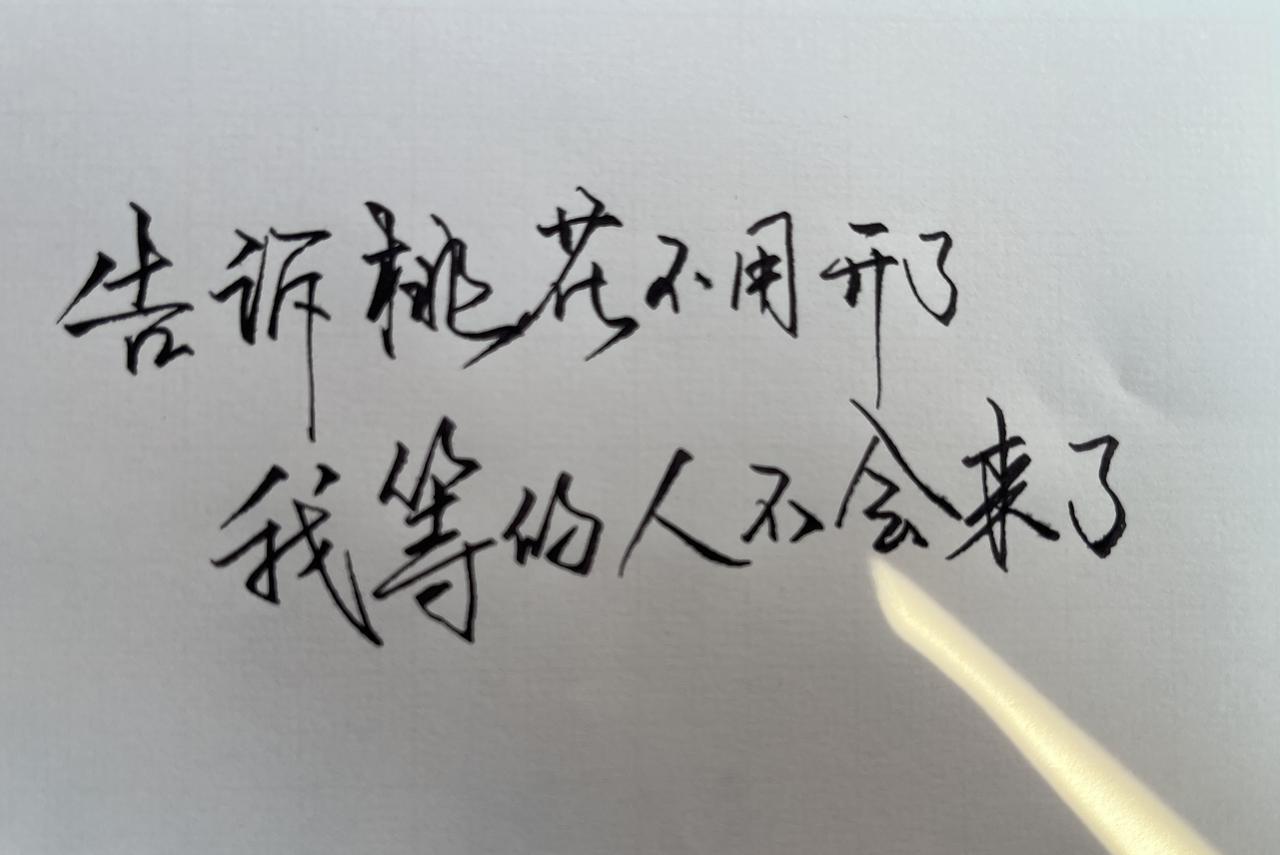 告诉桃花不用开了
我等的人不会来了